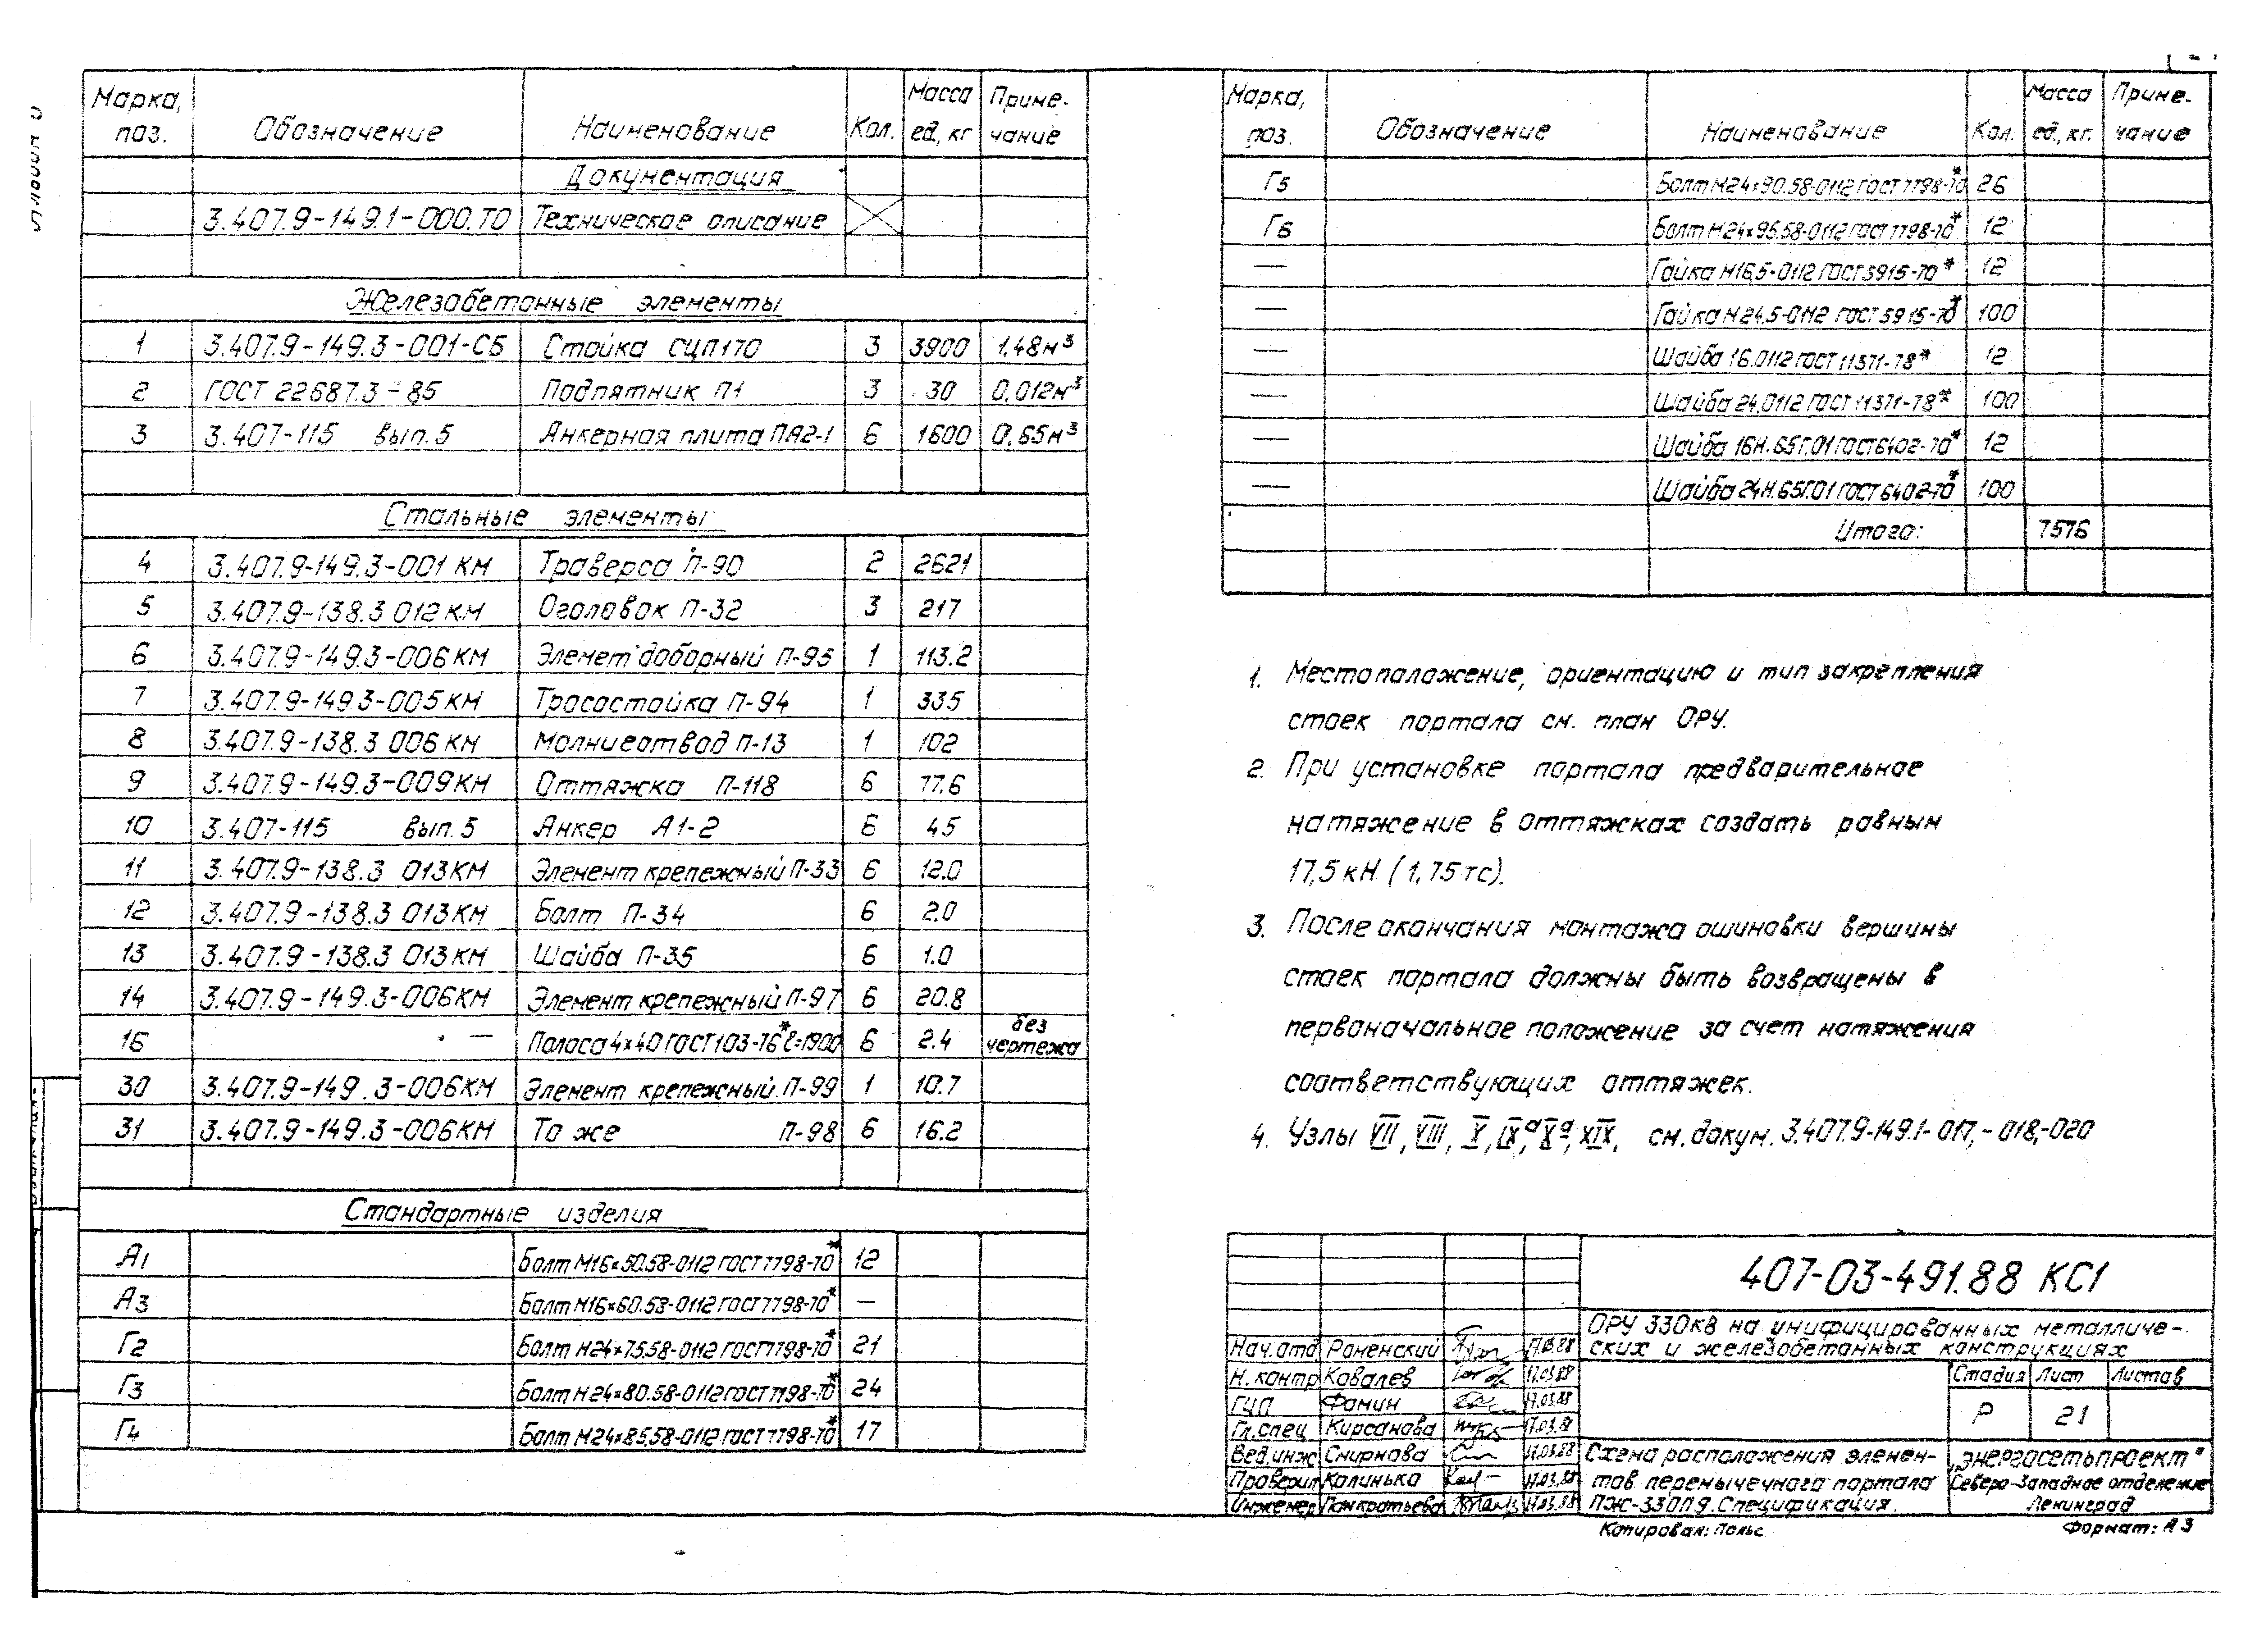 Марка, поз. Обозначение Наименование Кол. Масса ед, кг Приме- чание
Документация
3.407.9-149.1-000.ТО Техническое описание
Железобетонные элементы
1 3.407.9-149.3-001-СБ Стойка СЦП170 3 3900 1.48м³
2 ГОСТ 22687.3-85 Подпятник П1 3 30 0.012м³
3 3.407-115 вып.5 Анкерная плита ПА2-1 6 1600 0.65м³
Стальные элементы
4 3.407.9-149.3-001 КМ Траверса П-90 2 2621
5 3.407.9-138.3 012 КМ Оголовок П-32 3 217
6 3.407.9-149.3-006КМ Элемет доборный П-95 1 113.2
7 3.407.9-149.3-005КМ Тросостойка П-94 1 335
8 3.407.9-138.3 006 КМ Молниеотвод П-13 1 102
9 3.407.9-149.3-009КМ Оттяжка П-118 6 77.6
10 3.407-115 вып.5 Анкер А1-2 6 45
11 3.407.9-138.3 013КМ Элемент крепежный П-33 6 12.0
12 3.407.9-138.3 013КМ Болт П-34 6 2.0
13 3.407.9-138.3 013КМ Шайба П-35 6 1.0
14 3.407.9-149.3-006КМ Элемент крепежный П-97 6 20.8
16 — Полоса 4×40 ГОСТ103-76* ℓ=1900 6 2.4 без чертежа
30 3.407.9-149.3-006КМ Элемент крепежный П-99 1 10.7
31 3.407.9-149.3-006КМ То же П-98 6 16.2
Стандартные изделия
А1 Болт М16×50.58-0112 ГОСТ7798-70* 12
А3 Болт М16×60.58-0112 ГОСТ7798-70* —
Г2 Болт М24×75.58-0112 ГОСТ7798-70* 21
Г3 Болт М24×80.58-0112 ГОСТ7798-70* 24
Г4 Болт М24×85.58-0112 ГОСТ7798-70* 17
Марка, поз. Обозначение Наименование Кол. Масса ед., кг. Приме- чание
Г5 Болт М24×90.58-0112 ГОСТ7798-70* 26
Г6 Болт М24×95.58-0112 ГОСТ7798-70* 12
— Гайка М16.5-0112 ГОСТ5915-70* 12
— Гайка М24.5-0112 ГОСТ5915-70* 100
— Шайба 16.0112 ГОСТ11371-78* 12
— Шайба 24.0112 ГОСТ11371-78* 100
— Шайба 16Н.65Г.01 ГОСТ6402-70* 12
— Шайба 24Н.65Г.01 ГОСТ6402-70* 100
Итого: 7576
1. Местоположение, ориентацию и тип закрепления
стоек портала см. план ОРУ.
2. При установке портала предварительное
натяжение в оттяжках создать равным
17,5 кН (1,75 тс).
3. После окончания монтажа ошиновки вершины
стоек портала должны быть возвращены в
первоначальное положение за счет натяжения
соответствующих оттяжек.
4. Узлы VII, VIII, X, IXᵃ, Xᵃ, XIX, см. докум. 3.407.9-149.1-017,-018,-020
407-03-491.88 КС1
ОРУ 330кВ на унифицированных металличе-
ских и железобетонных конструкциях
Нач.отд Роменский 17.03.88
Н.контр Ковалев 17.03.88
ГИП Фомин 17.03.88
Гл.спец Кирсанова 17.03.88
Вед.инж Смирнова 17.03.88
Проверил Калинька 17.03.88
Инженер Панкратьева 17.03.88
Стадия Лист Листов
Р 21
Схема расположения элемен-
тов перемычечного портала
ПЖ-330П9. Спецификация.
„Энергосетьпроект"
Северо-Западное отделение
Ленинград
Копировал: Польс Формат: А3